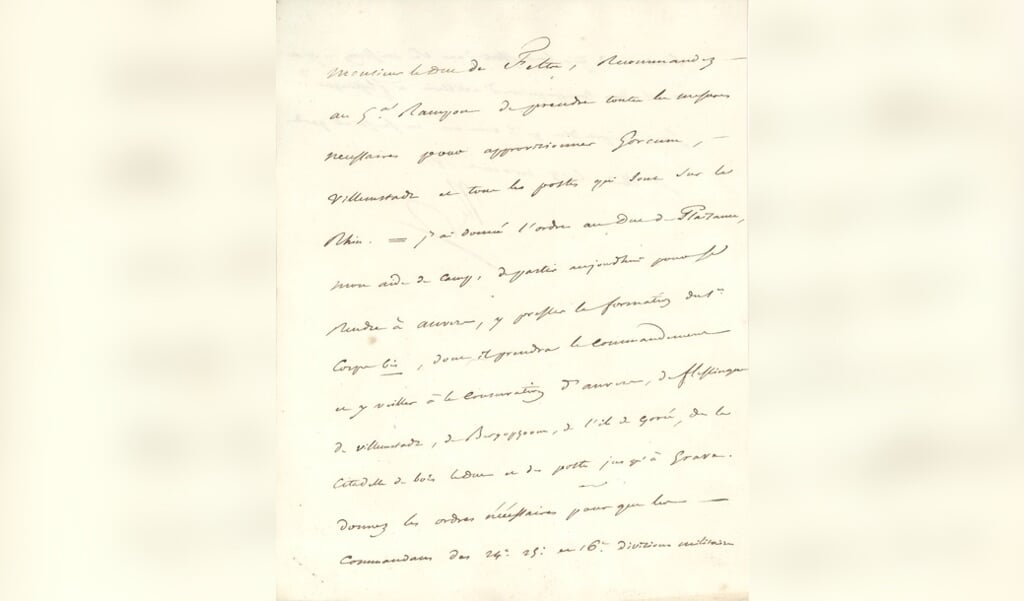 Monsieur le Duc de Feltre, Recommandez
au G.al Rampon de prendre toutes les mesures
necessaires pour approvisionner Gorcum,
Villemstadt et tous les postes qui sont sur le
Rhin. = j'ai donné l'ordre au Duc de Plaisance,
mon aide de camp, de partir aujourdhui pour se
Rendre à anvers, y presser la formation du 1.er
Corps bis, dont il prendra le commandement
et y veiller à la conservation d'anvers, de flessingue
de villemstadt, de Bergopzoom, de l'ile de Gorée, de la
Citadelle de bois leduc et des postes jusqu'à Grave.
donnez les ordres nécessaires pour que les
Commandans des 24.e 25.e et 16.e divisions militaires